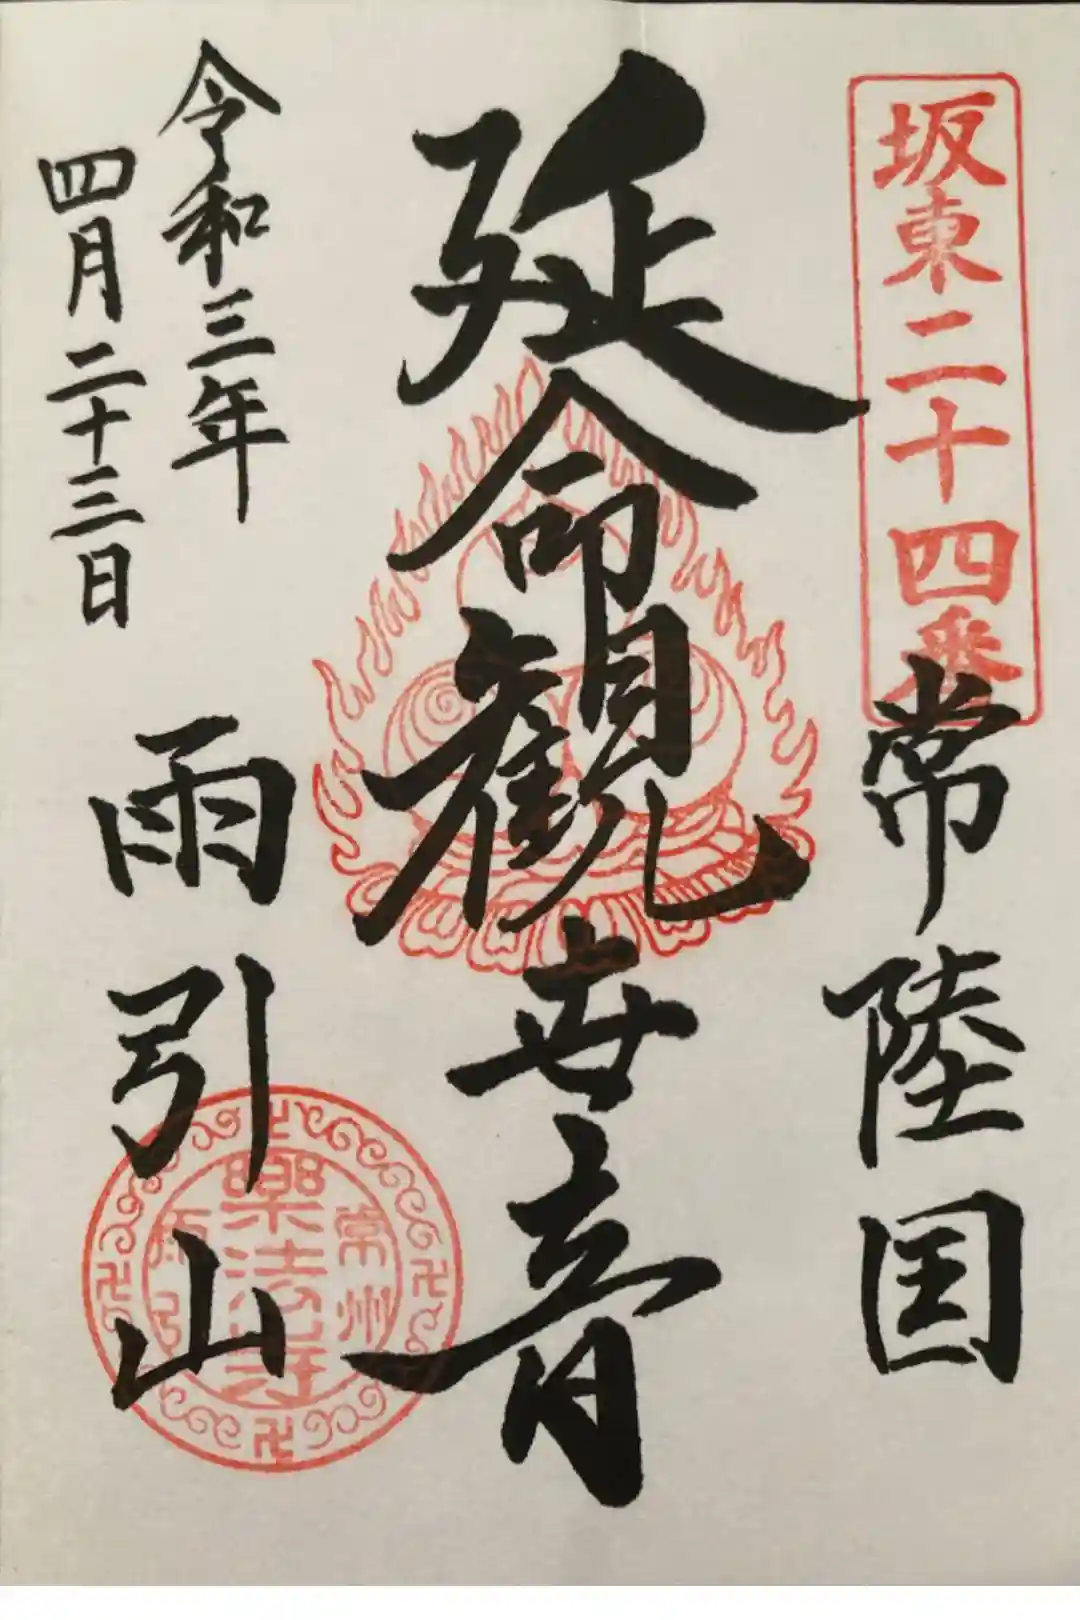 坂東二十四番
常陸国
延命観世音
令和三年
四月二十三日
雨引山
常州
樂法寺